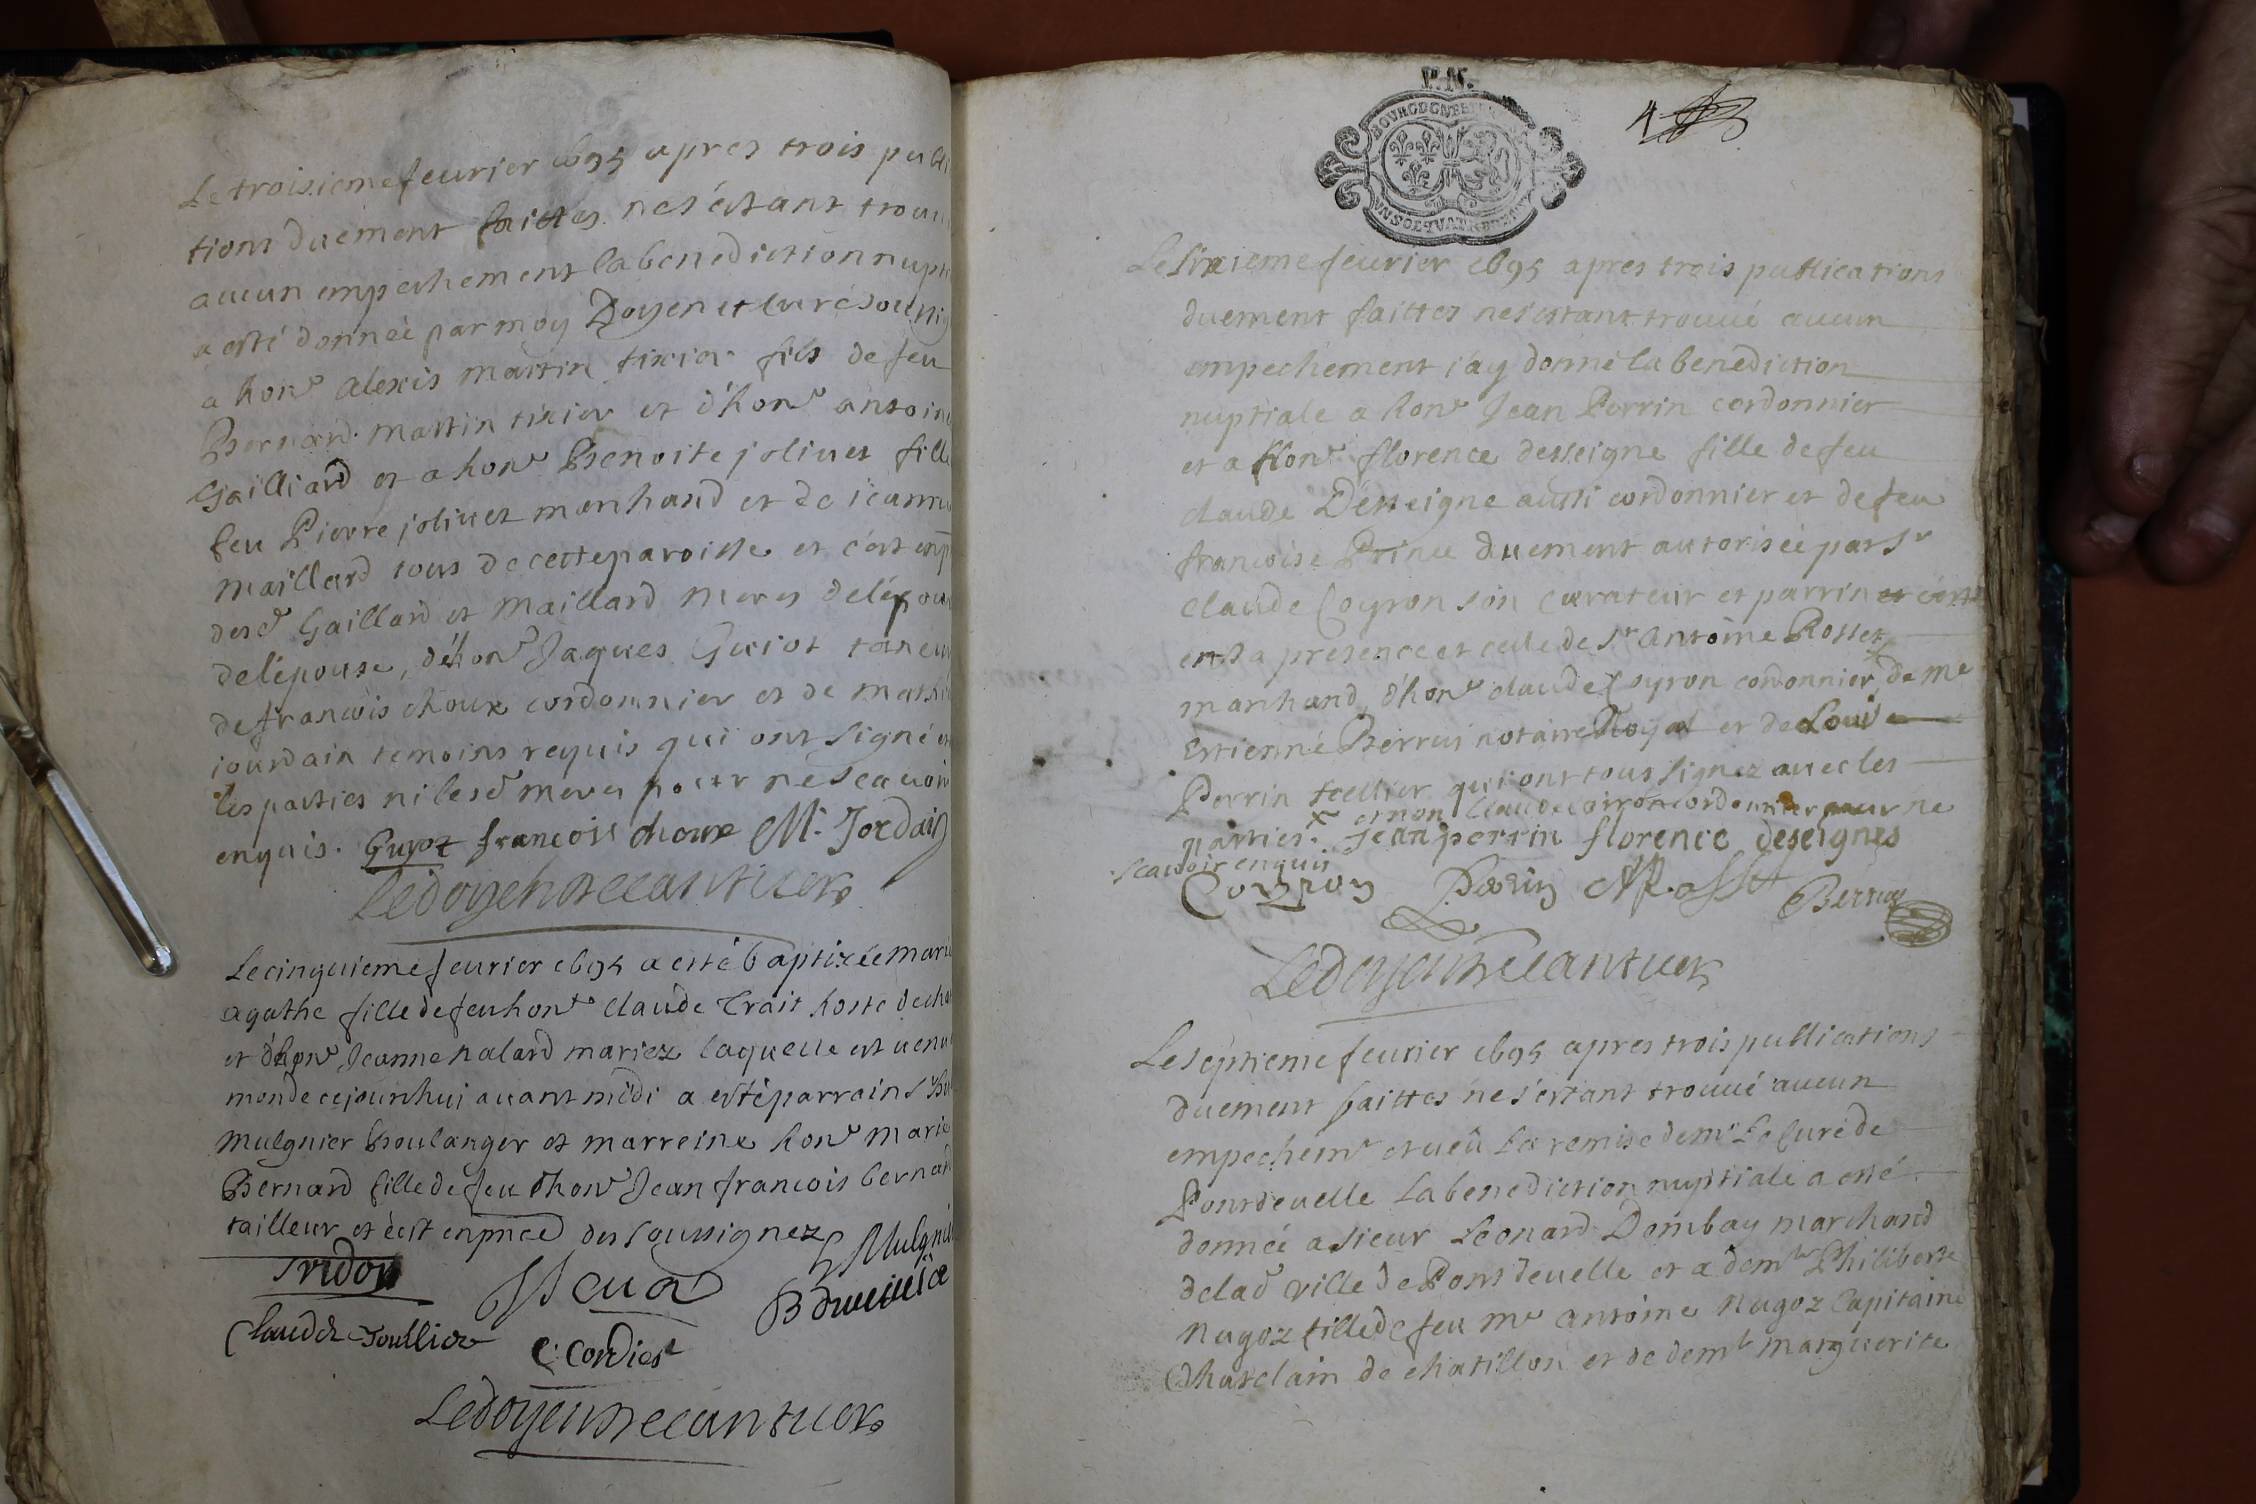 Le troisieme feurier 1695 apres trois publi
tions duement faittes nes'éstant trouu
aucun empechement la benediction nupti
a esté donneé par moy Doyen et Curé soussig
a hon^e alexis martin tixier fils de feu
Bernard martin tixier et d'hon^e antoine
Gailliard et a hon^e Benoite joliuet fille
feu Pierre joliuet marchand et de jeanne
Maillard tous de cette paroisse et c'est en p
des^d Gaillard et Maillard Meres de lépou
de lépouse, d'éhon^e Jaques Guiot taneur
de francois choux cordonnier et de mathi
iourdain temoins requis qui ont signé et
les parties ni les^d meres pour ne scauoir
enquis. Guyot françois choux M. Jordain
Le doyen
Le cinquieme feurier 1695 a esté baptizée marie
agathe fille de feu hon^e Claude Trait hoste de cha
et d'hon^e Jeanne halard mariez laquelle est uenu
monde cejourdhui auant midi a esté parrain s^r
Mulgnier boulanger et marreine hon^e marie
Bernard fille de feu d'hon^e Jean francois bernard
tailleur et c'est en pnce des soussignez
Mulgnier
Claude C. Cordier
Le doyen
P.N.
BOVRGOGNE
4
Le sixieme feurier 1695 apres trois publications
duement faittes nes'estant trouué aucun
empechement j'ay donné la benediction
nuptiale a hon^e Jean Perrin cordonnier
et a hon^e florence desseigne fille de feu
claude Desseigne aussi cordonnier et de feu
francoise Prince duement autoriseé par S^r
claude Coyron son curateur et parrin et c'est
en sa presence et celle de S^r Antoine Rosset
marchand, d'hon^e claude Coyron cordonnier, de M^e
Estienne Berrus notaire Royal et de Louis
Perrin sellier qui ont tous signez auec les
et non claude coiron cordonnier pour ne
parties. Jean perrin florence deseignes
scauoir enquis
Coyron Perrin A Rosset Berrus
Le doyen
Le séptieme feurier 1695 apres trois publications
duement faittes ne s'estant trouué aucun
empechém^t et ueû La remise de m^r Le Curé de
Pontdeuelle La benediction nuptiale a esté
donneé a sieur Leonard Dombay marchand
de lad^e ville de Pontdeuelle et a dem^lle Philiberte
Nugoz fille de feu M^e antoine Nugoz Capitaine
Chatelain de chatillon et de dem^lle marguerite